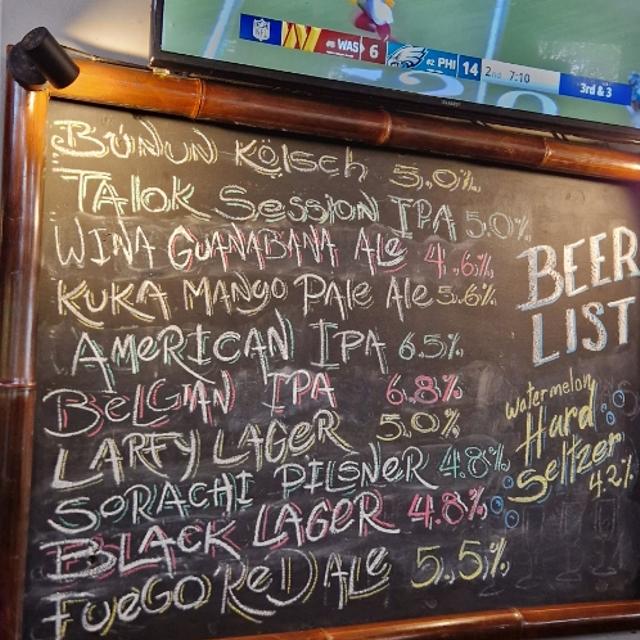 NFL WAS 6 #2 PHI 14 2nd 7:10 3rd & 3
BUNUN KÖLSCH 5.0%
TALOK SESSION IPA 5.0%
WINA GUANABANA ALE 4.6%
KUKA MANGO PALE ALE 5.6%
AMERICAN IPA 6.5%
BELGIAN IPA 6.8%
LARRY LAGER 5.0%
SORACHI PILSNER 4.8%
BLACK LAGER 4.8%
FUEGO RED ALE 5.5%
BEER
LIST
Watermelon
Hard
Seltzer
4.2%